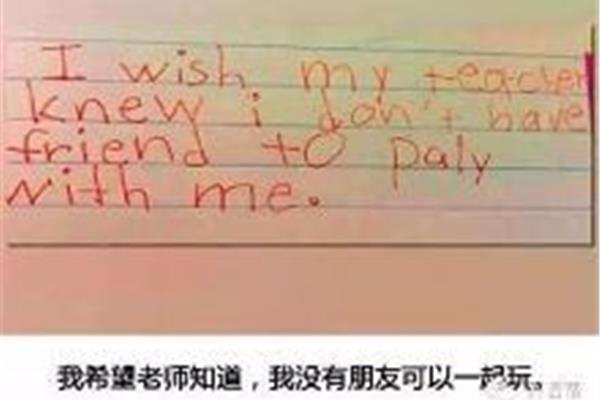 I wish my teacher
knew i don't have
friend to paly
with me.
我希望老师知道，我没有朋友可以一起玩。